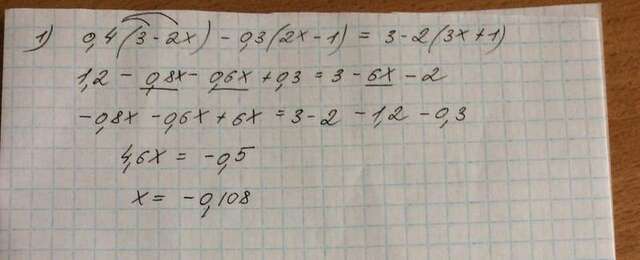 1) 0,4(3-2x) - 0,3(2x-1) = 3-2(3x+1)
1,2 - 0,8x - 0,6x + 0,3 = 3 - 6x - 2
-0,8x - 0,6x + 6x = 3 - 2 - 1,2 - 0,3
4,6x = -0,5
x = -0,108